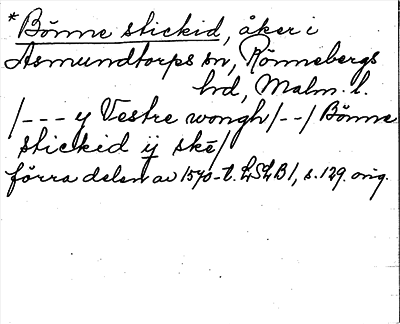 *Bönne stickid, åker i
Asmundtorps sn, Rönnebergs
hd, Malm. l.
/--- y Vestre wongh/--/ Bönne
stickid ij skē/
förra delen av 1570-t. LSLB1, s.129. orig.